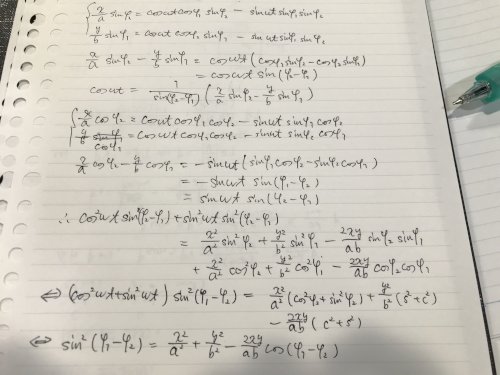 x/a sinφ₁ = cosωt cosφ₁ sinφ₂ − sinωt sinφ₁ sinφ₂
y/b sinφ₁ = cosωt cosφ₂ sinφ₁ − sinωt sinφ₁ sinφ₂
x/a sinφ₂ − y/b sinφ₁ = cosωt (cosφ₁ sinφ₂ − cosφ₂ sinφ₁)
= cosωt sin(φ₂−φ₁)
cosωt = 1/sin(φ₂−φ₁) (x/a sinφ₂ − y/b sinφ₁)
x/a cosφ₂ = cosωt cosφ₁ cosφ₂ − sinωt sinφ₁ cosφ₂
y/b cosφ₁ = cosωt cosφ₁ cosφ₂ − sinωt sinφ₂ cosφ₁
x/a cosφ₂ − y/b cosφ₁ = −sinωt (sinφ₁ cosφ₂ − sinφ₂ cosφ₁)
= −sinωt sin(φ₁−φ₂)
= sinωt sin(φ₂−φ₁)
∴ cos²ωt sin²(φ₂−φ₁) + sin²ωt sin²(φ₂−φ₁)
= x²/a² sin²φ₂ + y²/b² sin²φ₁ − 2xy/ab sinφ₂ sinφ₁
+ x²/a² cos²φ₂ + y²/b² cos²φ₁ − 2xy/ab cosφ₂ cosφ₁
⇔ (cos²ωt + sin²ωt) sin²(φ₁−φ₂) = x²/a² (cos²φ₂ + sin²φ₂) + y²/b² (s²+c²)
− 2xy/ab (c²+s²)
⇔ sin²(φ₁−φ₂) = x²/a² + y²/b² − 2xy/ab cos(φ₁−φ₂)